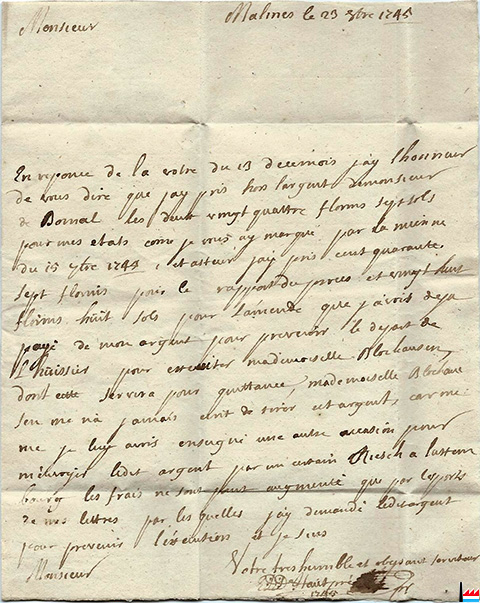 Malines le 23 xbre 1745
Monsieur
En reponce de la votre du 13 decemois j'ay l'honneur
de vous dire que jay pris hors largent de monsieur
de Bornal les deux vingt quattre florins sept sols
pour mes etats come je vous ay marqué par la mienne
du 15 1745, et asteur jay pris cent quarante
sept florins pour le rapport du proces et vingt huit
florins huit sols pour lamende que j'avois deja
payé de mon argent pour prevenir le depart de
l'huissier pour executer mademoiselle Blochausen,
dont cette servira pour quittance mademoiselle Blochau
sen me na jamais ecrit de tirer cet argent, car
me je luy avois une autre occasion pour
m'envoyer ledit argent par un certain a Luxem
bourg les frais ne sont point augmenté que par les ports
de mes lettres par les quelles jay demandé ledit argent
pour prevenir l'execution et je suis
Votre tres humble et obeysant serviteur
Monsieur
1745